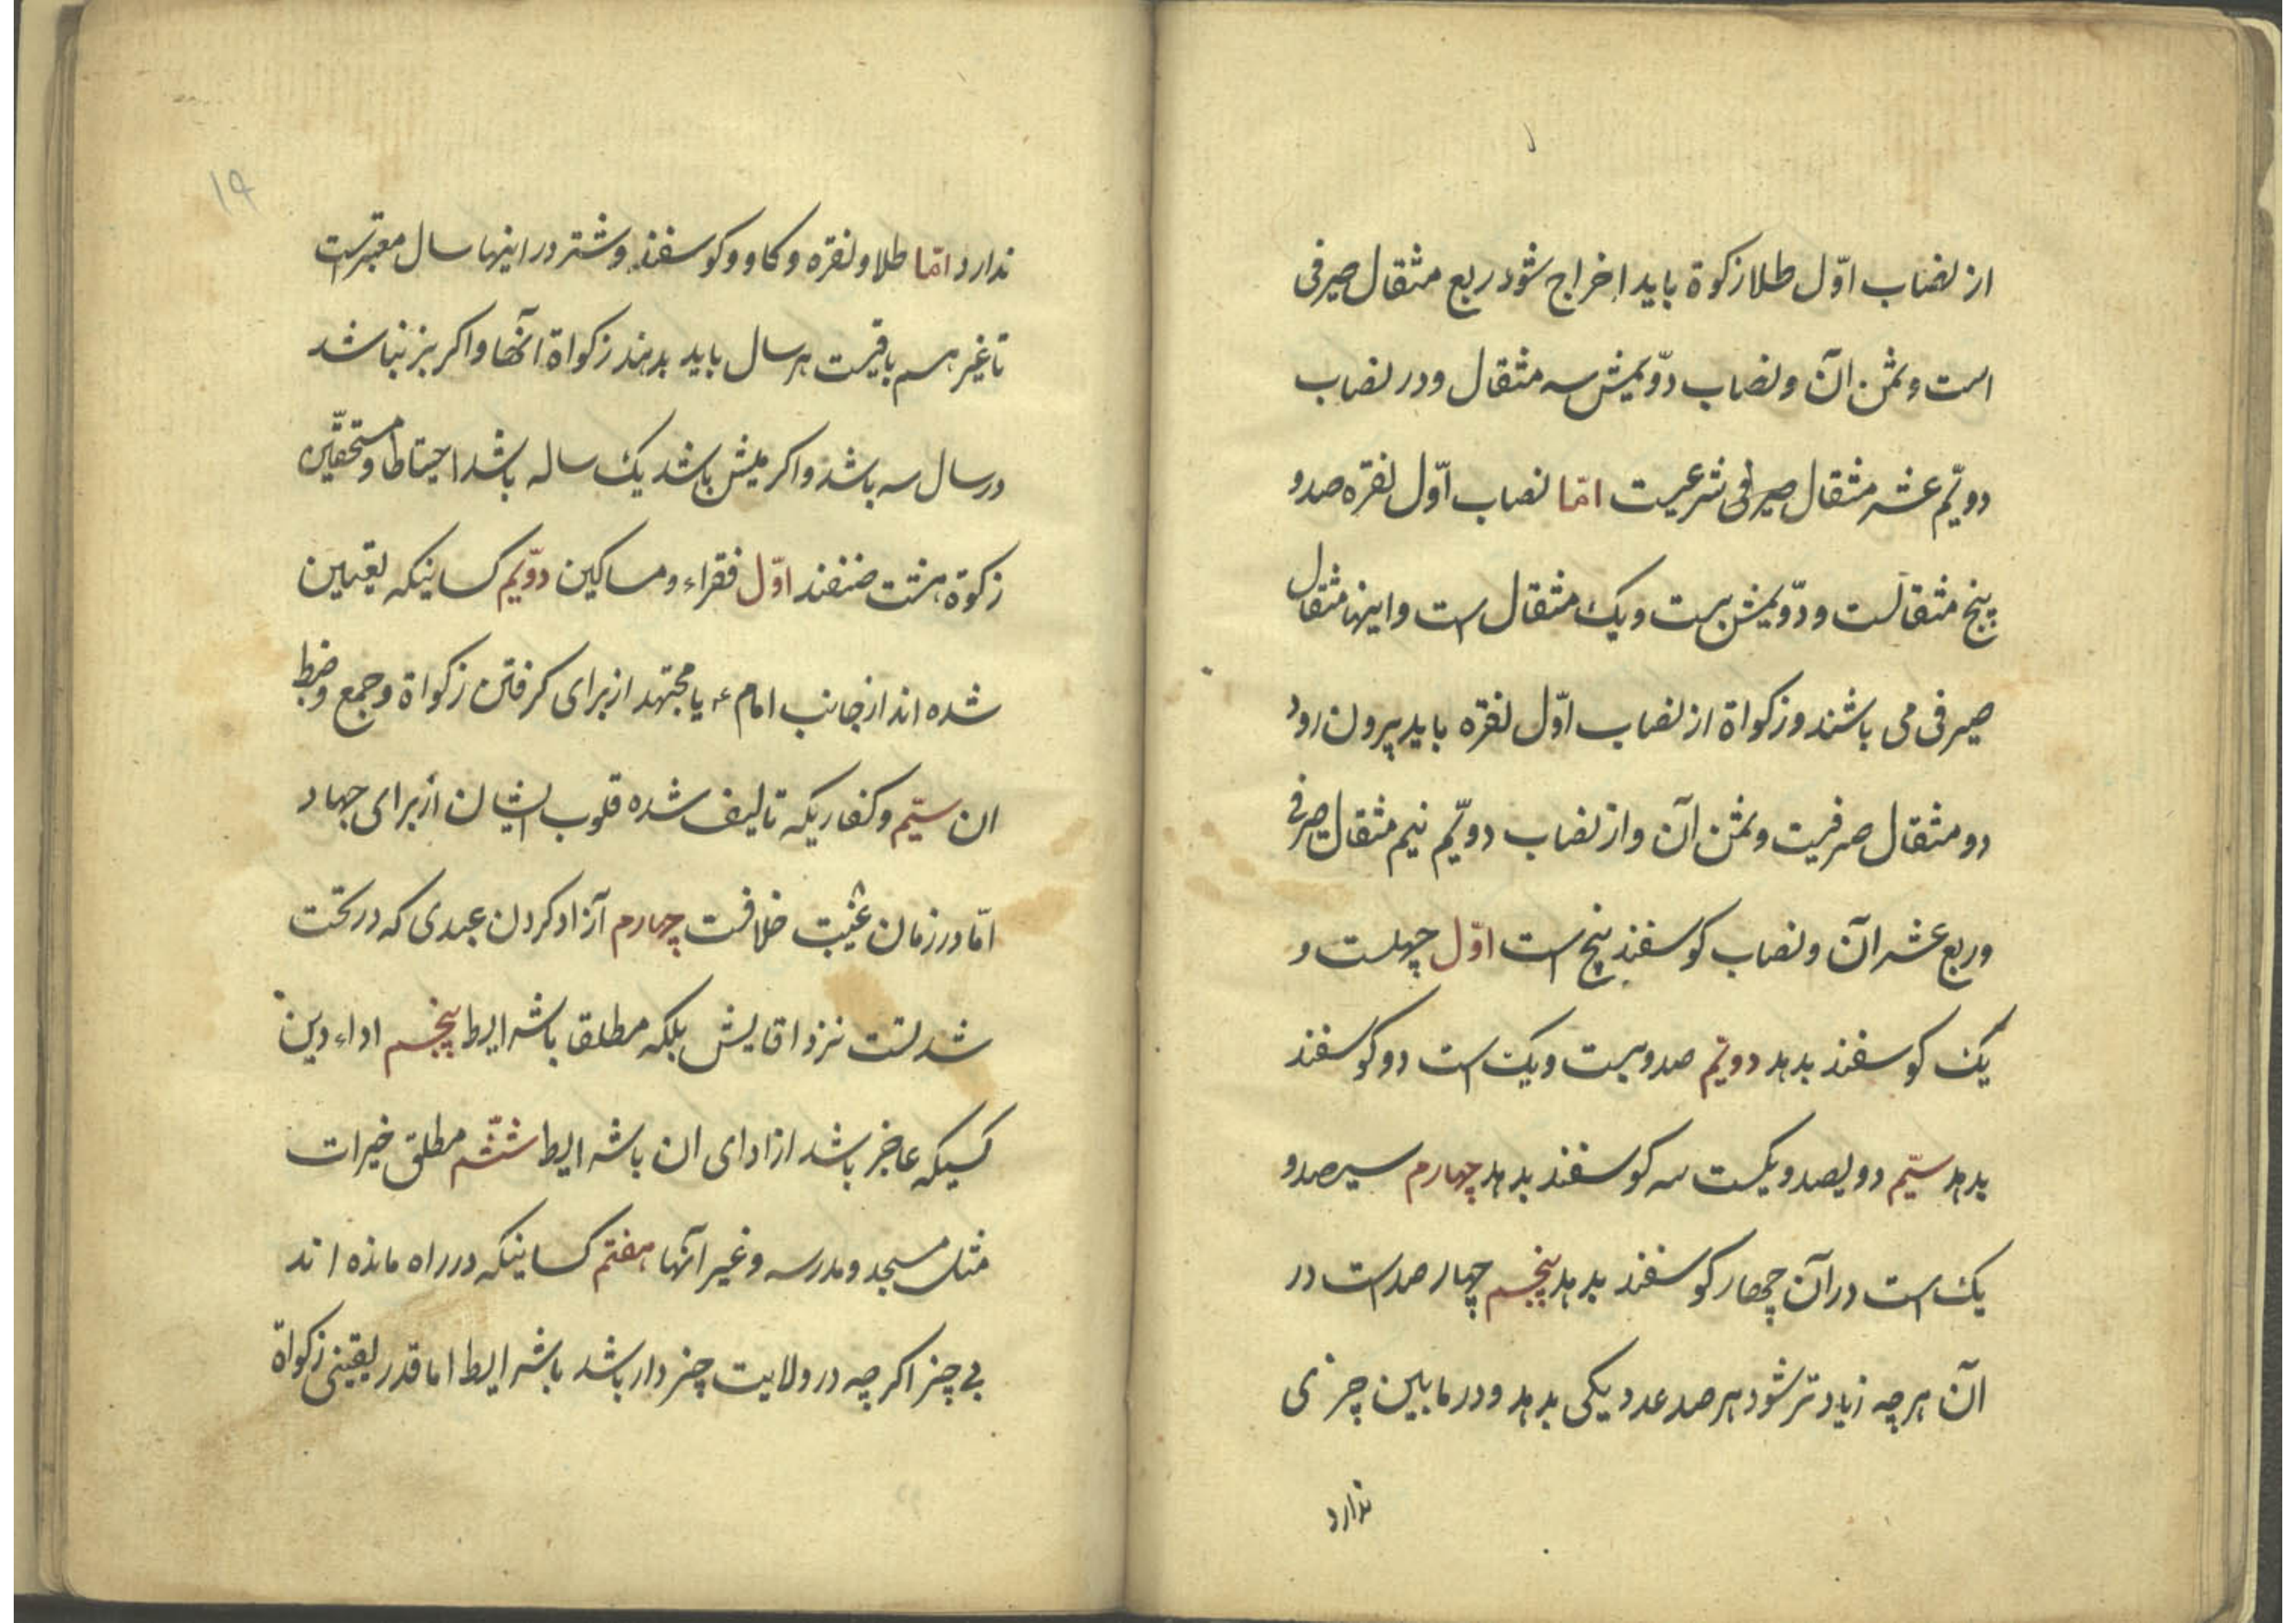 از نصاب اوّل طلا زکوة باید اخراج شود ربع مثقال صیرفی
است و ثمن آن و نصاب دوّیمش سه مثقال و در نصاب
دویّم عشر مثقال صیرفی شرعیست امّا نصاب اوّل نقره صد و
پنج مثقالست و دوّیمش بیست و یک مثقال است و اینها مثقال
صیرفی می باشند و زکواة از نصاب اوّل نقره باید بیرون رود
دو مثقال صرفیت و ثمن آن و از نصاب دویّم نیم مثقال صیرفی
و ربع عشر آن و نصاب کوسفند پنج است اوّل چهلست و
یک کوسفند بدهد دویّم صد و بیست و یک است دو کوسفند
بدهد سیّم دویصد و یکست سه کوسفند بدهد چهارم سیصد و
یک است در آن چهار کوسفند بدهد پنجم چهار صد است در
آن هر چه زیاد تر شود هر صد عدد یکی بدهد و در ما بین چیزی
ندارد
۱۹
ندارد امّا طلا و نقره و کاو و کوسفند و شتر در اینها سال معتبر است
تا غیر هم باقیست هر سال باید بدهند زکواة آنها و اکر بز نباشد
در سال سه باشد و اکر میش باشد یک ساله باشد احتیاطا و مستحقّین
زکوة هشت صنفند اوّل فقراء و مساکین دوّیم کسانیکه تعیین
شده اند از جانب امام ع یا مجتهد از برای کرفتن زکواة و جمع و ضبط
ان سیّم و کفاریکه تالیف شده قلوب ایشان از برای جهاد
امّا در زمان غیبت خلافست چهارم آزاد کردن عبدی که در تحت
شدتست نزد اقایش بلکه مطلقا باشرایط پنجم اداء دین
کسیکه عاجز باشد از ادای ان باشرایط ششم مطلق خیرات
مثل مسجد و مدرسه و غیر آنها هفتم کسانیکه در راه مانده اند
بی چیز اکر چه در ولایت چیز دار باشد باشرایط اما قدر یقینی زکواة